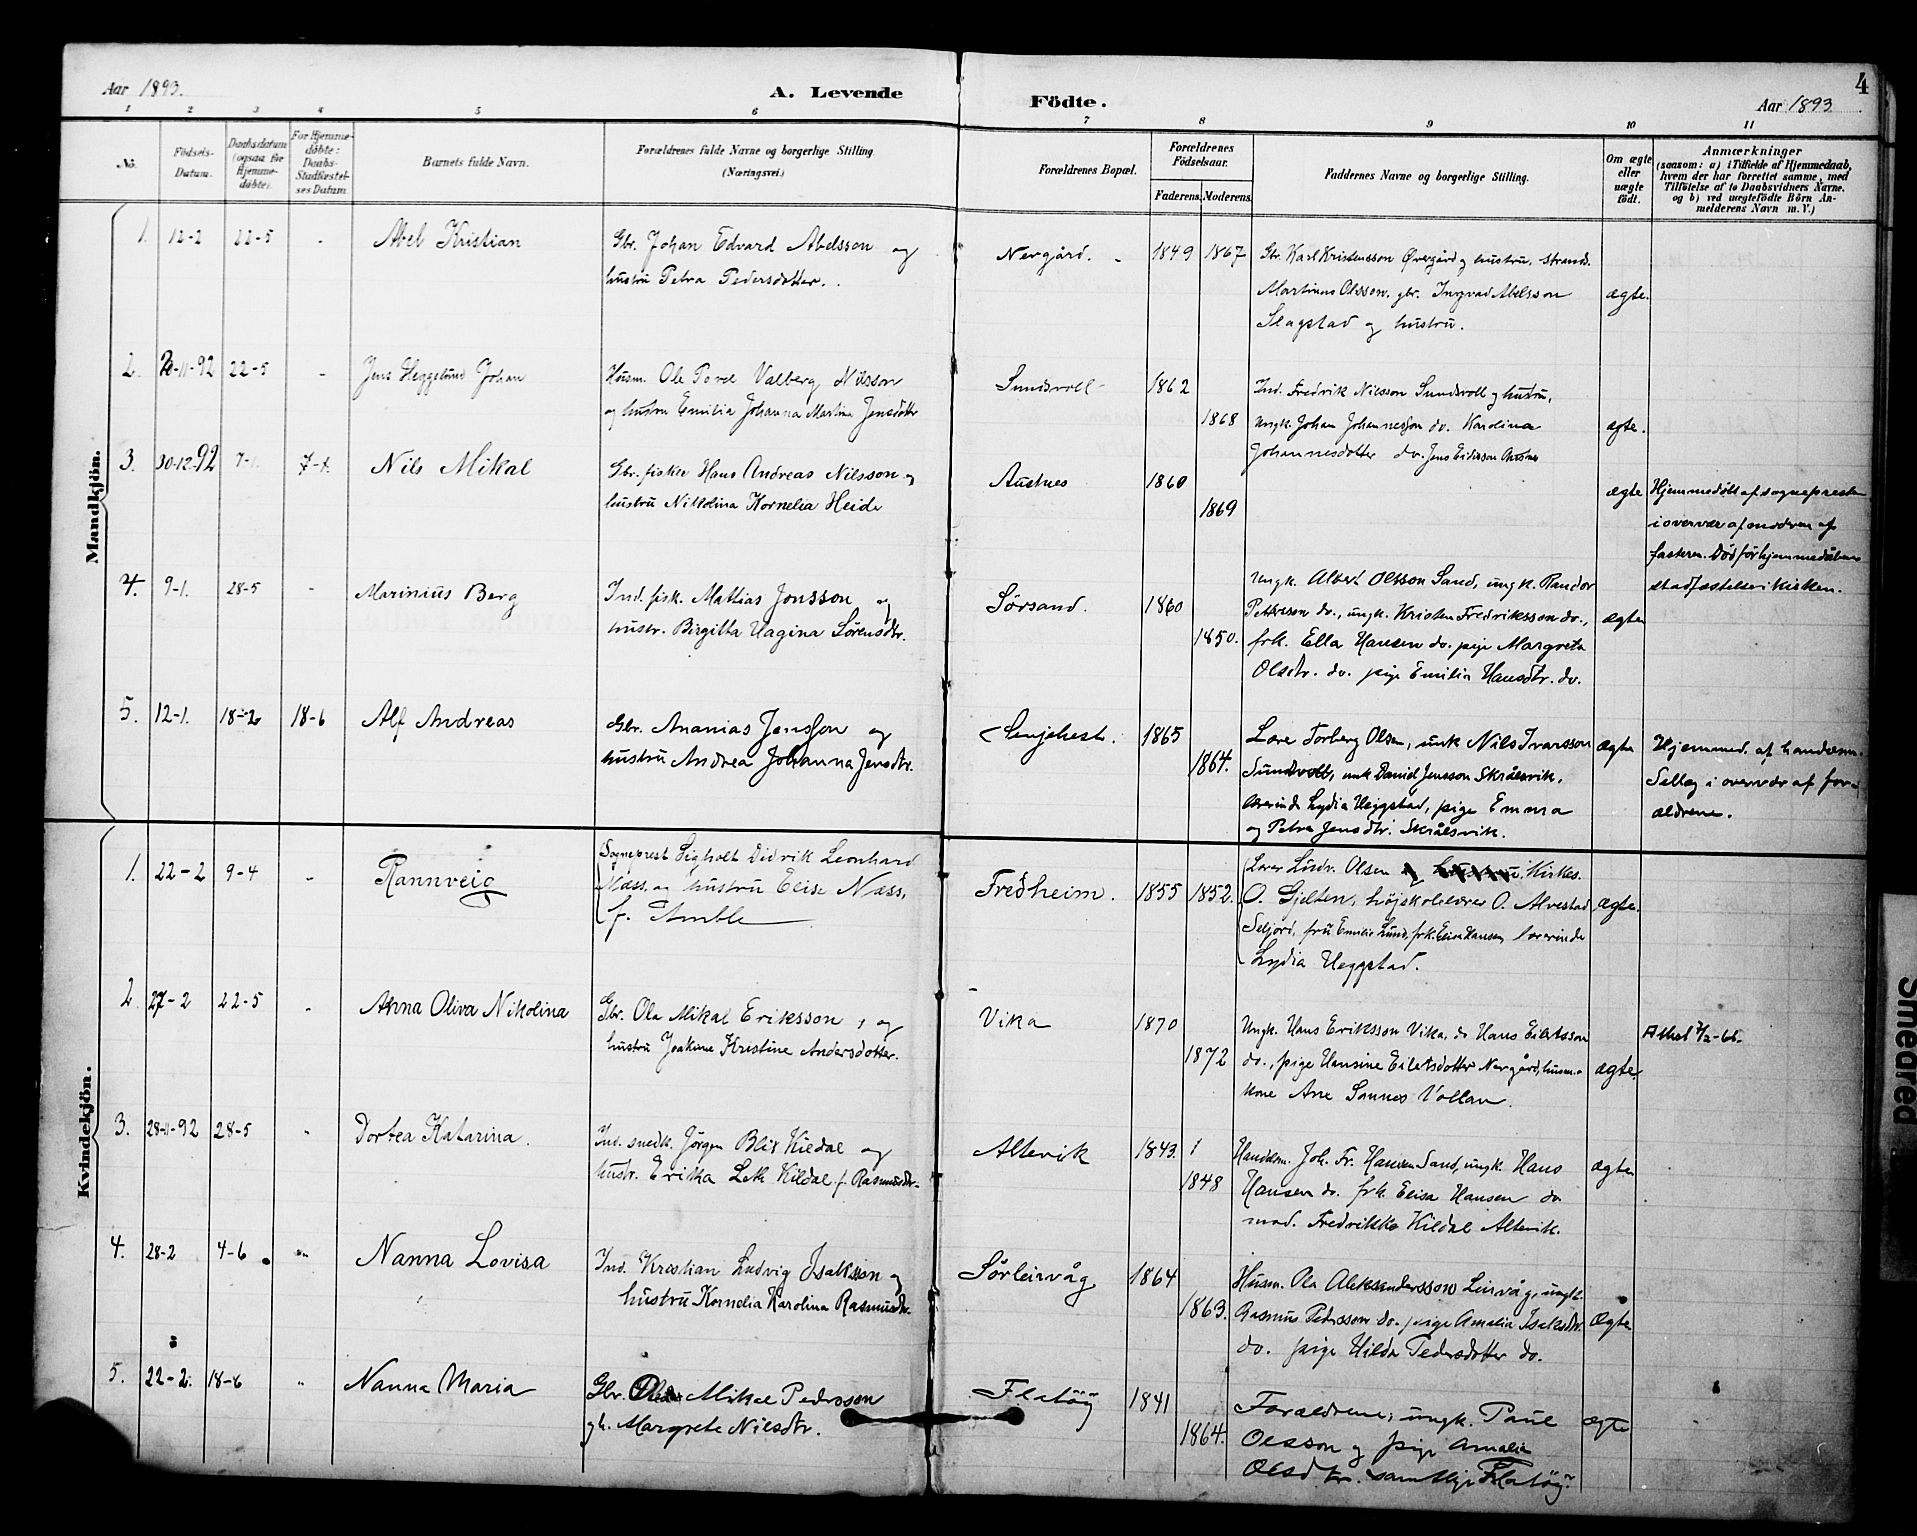 Aar 1893.
A. Levende Födte.
Aar 1893
4
1 2 3 4 5 6 7 8 9 10 11
No.
Födsels-Datum.
Daabsdatum (ogsaa for Hjemmedöbte).
For Hjemmedöbte: Daabs-Stadfæstelses Datum.
Barnets fulde Navn.
Forældrenes fulde Navne og borgerlige Stilling. (Næringsvei.)
Forældrenes Bopæl.
Forældrenes Födselsaar.
Faderens. Moderens.
Faddernes Navne og borgerlige Stilling.
Om ægte eller uægte födt.
Anmærkninger
(saasom: a) i Tilfælde af Hjemmedaab, hvem der har forrettet samme, med Tilföielse af to Daabsvidners Navne. og b) ved uægtefödte Börn Anmelderens Navn m. V.)
Mandkjön.
1. 12-2 22-5 - Abel Kristian
Gbr. Johan Edvard Abelsson og
hustru Petra Pedersdotter.
Nergård. 1849 1867
Gbr. Karl Kristensson Øvergård og hustru, strands.
Martinus Olsson, gbr. Ingvad Abelsson
Slagstad og hustru.
ægte.
2. 20-11-92 22-5 - Jens Heggelund Johan
Husm. Ole Tord Valberg Nilsson
og hustru Emilia Johanna Martina Jensdotter
Sundsvoll 1862 1868
Ind. Fredrik Nilsson Sundsvoll og hustru,
ungk. Johan Johannesson do. Karolina
Johannesdotter do. Jens
ægte.
3. 30-12-92 7-1. 7-1. Nils Mikal
Gbr. fisker Hans Andreas Nilsson og
hustru Nikolina Kornelia Heide
Austnes 1860 1869
ægte
Hjemmedøbt af sognepresten
i overvær af moderen og
fasteren. Død før hjemmedåbens
stadfæstelse i kirken.
4. 9-1. 28-5 - Marinius Berg
Ind. fisk. Mattias Jonsson og
hustr. Birgitta Hagina Sørensdtr.
Sørsand. 1860 1850.
Ungk. Albert Olsson Sand, ungk. Randor
Pettersen do., ungk. Kristen Fredriksson do.,
frk. Ella Hansen do. pige Margreta
Olsdtr. do. pige Emilia Hansdtr. do.
ægte
5. 12-1. 18-2 18-6 Alf Andreas
Gbr. Ananias Jensson og
hustru Andrea Johanna Jensdtr.
Senjehest. 1865 1864.
Lære Torberg Olsen, unk Nils Ivarsson
Sundvoll, unk Daniel Jensson Skrålsvik,
lærerinde Lydia Heggstad, pige Emma
og Petra Jensdtr. Skrålsvik.
ægte
Hjemmed. af handelsm.
Selbog i overvær af for-
ældrene.
Kvindekjön.
1. 22-2 9-4 " Rannveig
Sogneprest Sigholt Didrik Leonhard
Næss, og hustru Elise Næss,
f. Amble
Fredheim. 1855 1852.
Lærer Ludv. Olsen og hustru, Kirkes.
O. Gjelten, højskolelærer O. Alvestad
Seljord, fru Emilie Lund, frk. Elise Hansen, lærerinde
Lydia Heggstad.
ægte.
2. 27-2 22-5 " Anna Oliva Nikolina
Gbr. Ola Mikal Eriksson, og
hustru Joakime Kristine Andersdotter.
Vika 1870 1872
Ungk. Hans Eriksson Vika, do Hans Eilertsson
do., pige Hansine Eilertsdotter Nergård, husm.-
kone Ane Sannes Vollan.
ægte.
Attest 7/2-66.
3. 28-11-92 28-5 " Dortea Katarina.
Ind. snedk. Jørgen Blix Kildal og
hustr. Erika Lek Kildal f. Rasmusdtr.
Altevik 1843. 1848
Handelsm. Joh. Fr. Hansen Sand, ungk. Hans
Hansen do. frk. Elisa Hansen do
mad. Fredrikke Kildal Altevik.
ægte
4. 28-2 4-6 " Nanna Lovisa
Ind. Kristian Ludvig Isaksson og
hustru Kornelia Karolina Rasmusdtr.
Sørleirvåg 1864 1863.
Husm. Ola Aleksandersson Leirvåg, ungk.
Rasmus Pedersson do. pige Amalia Isaksdtr.
do. pige Hilda Pedersdotter do.
Ægte
5. 22-2. 18-6 " Nanna Maria
Gbr. Mikal Pedersson
gh. Margrete Nilsdtr.
Flatøy 1841 1864.
Forældrene, ungk. Paul
Olsson og pige Amalia
Olsdtr. samtlige Flatøy.
ægte
Smedred